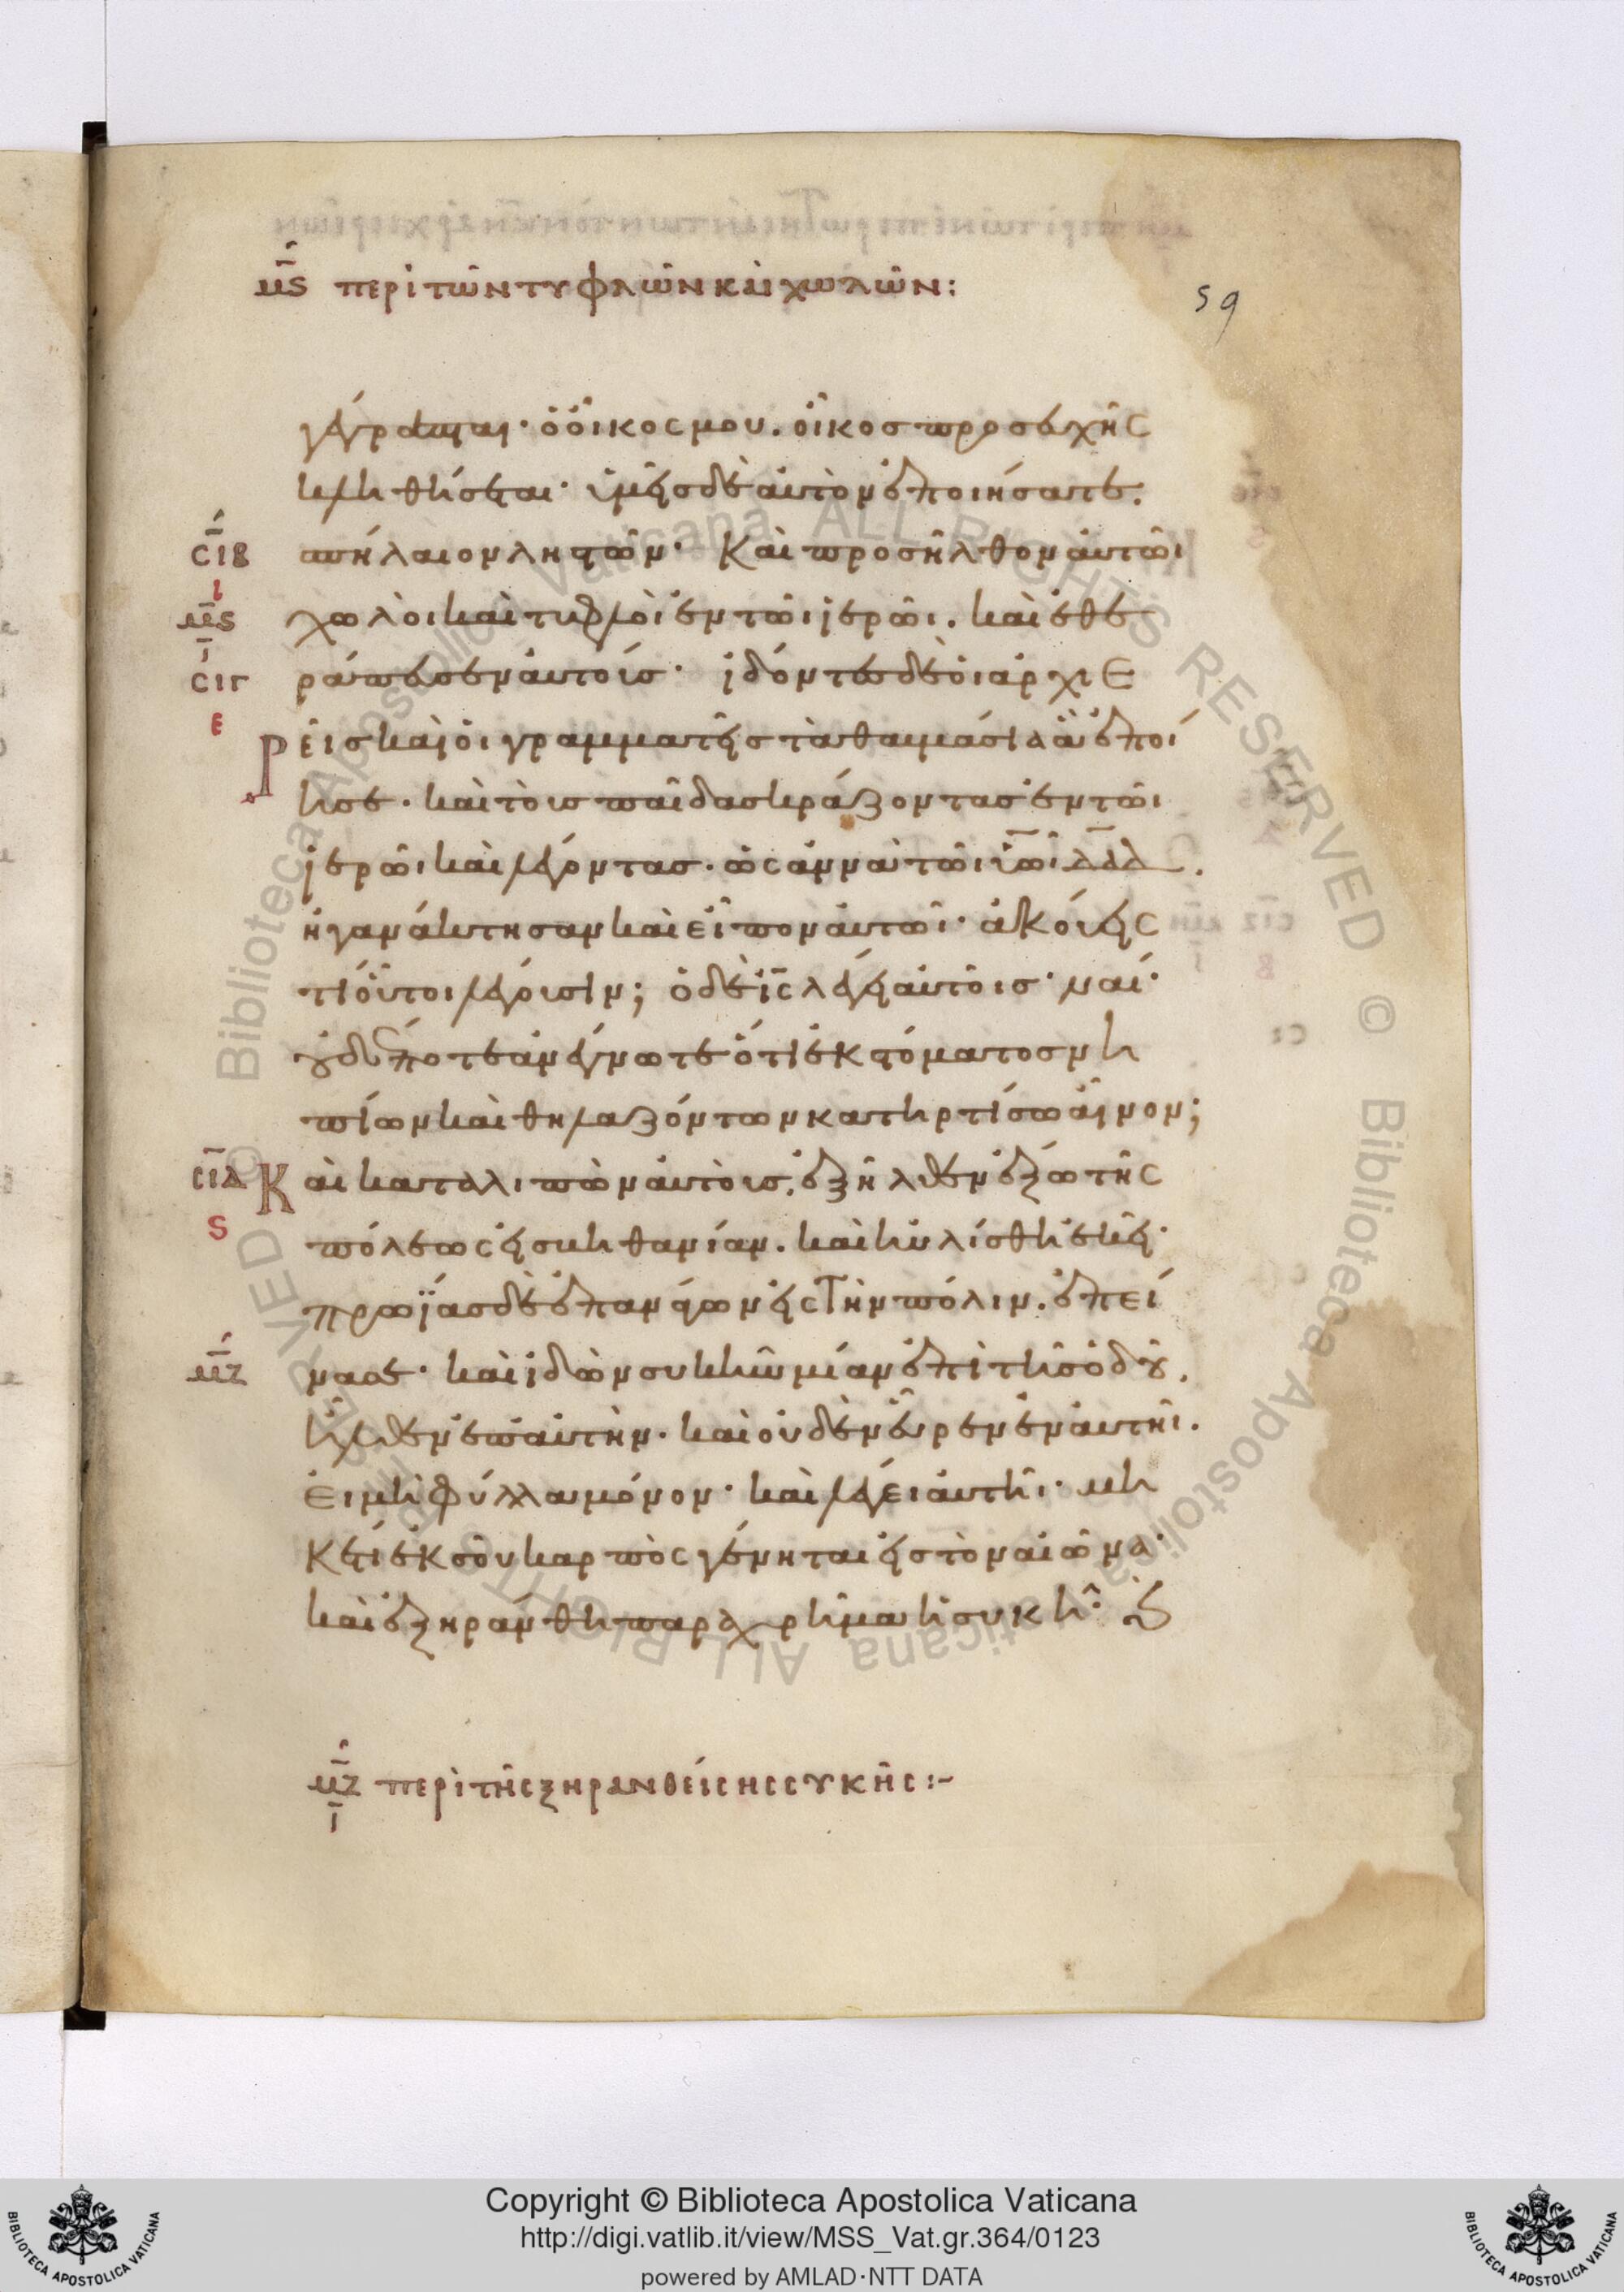 μς περὶ τῶν τυφλῶν καὶ χωλῶν:
59
γέγραπται· ὁ οἶκος μου. οἶκος προσευχῆς
κληθήσεται· ὑμεῖς δὲ αὐτὸν ἐποιήσατε.
σιβ σπήλαιον ληστῶν· Καὶ προσῆλθον αὐτῶι
μς χωλοὶ καὶ τυφλοὶ ἐν τῶι ἱερῶι. καὶ ἐθε
σιγ ράπευσεν αὐτούς· ἰδόντες δὲ οἱ ἀρχιε
ε
ρεῖς καὶ οἱ γραμματεῖς τὰ θαυμάσια ἃ ἐποί
ησε. καὶ τοὺς παῖδας κράζοντας ἐν τῶι
ἱερῶι καὶ λέγοντας. ὡς ἀννὰ τῶι υῶι δαδ.
ἠγανάκτησαν καὶ εἶπον αὐτῶι· ἀκούεις
τί οὗτοι λέγουσιν; ὁ δὲ ις λέγει αὐτοῖς· ναί·
οὐδέποτε ἀνέγνωτε ὅτι ἐκ στόματος νη
πίων καὶ θηλαζόντων κατηρτίσω αἶνον;
σιδ Καὶ καταλιπὼν αὐτοὺς. ἐξῆλθεν ἔξω τῆς
ς
πόλεως εἰς βηθανίαν. καὶ ηὐλίσθη ἐκεῖ·
πρωΐας δὲ ἐπανάγων εἰς τὴν πόλιν. ἐπεί
μζ νασε· καὶ ἰδὼν συκῆν μίαν ἐπὶ τῆς ὁδοῦ.
ἦλθεν ἐπ' αὐτὴν. καὶ οὐδὲν εὗρεν ἐν αὐτῆι.
εἰ μὴ φύλλα μόνον· καὶ λέγει αὐτῆι· μη
κέτι ἐκ σοῦ καρπὸς γένηται εἰς τὸν αἰῶνα·
καὶ ἐξηράνθη παραχρῆμα ἡ συκῆ·
μζ περὶ τῆς ξηρανθείσης συκῆς:~
ι
Copyright © Biblioteca Apostolica Vaticana
http://digi.vatlib.it/view/MSS_Vat.gr.364/0123
powered by AMLAD·NTT DATA
BIBLIOTECA APOSTOLICA VATICANA
BIBLIOTECA APOSTOLICA VATICANA
© Biblioteca Apostolica Vaticana ALL RIGHTS RESERVED
© Biblioteca Apostolica Vaticana ALL RIGHTS RESERVED